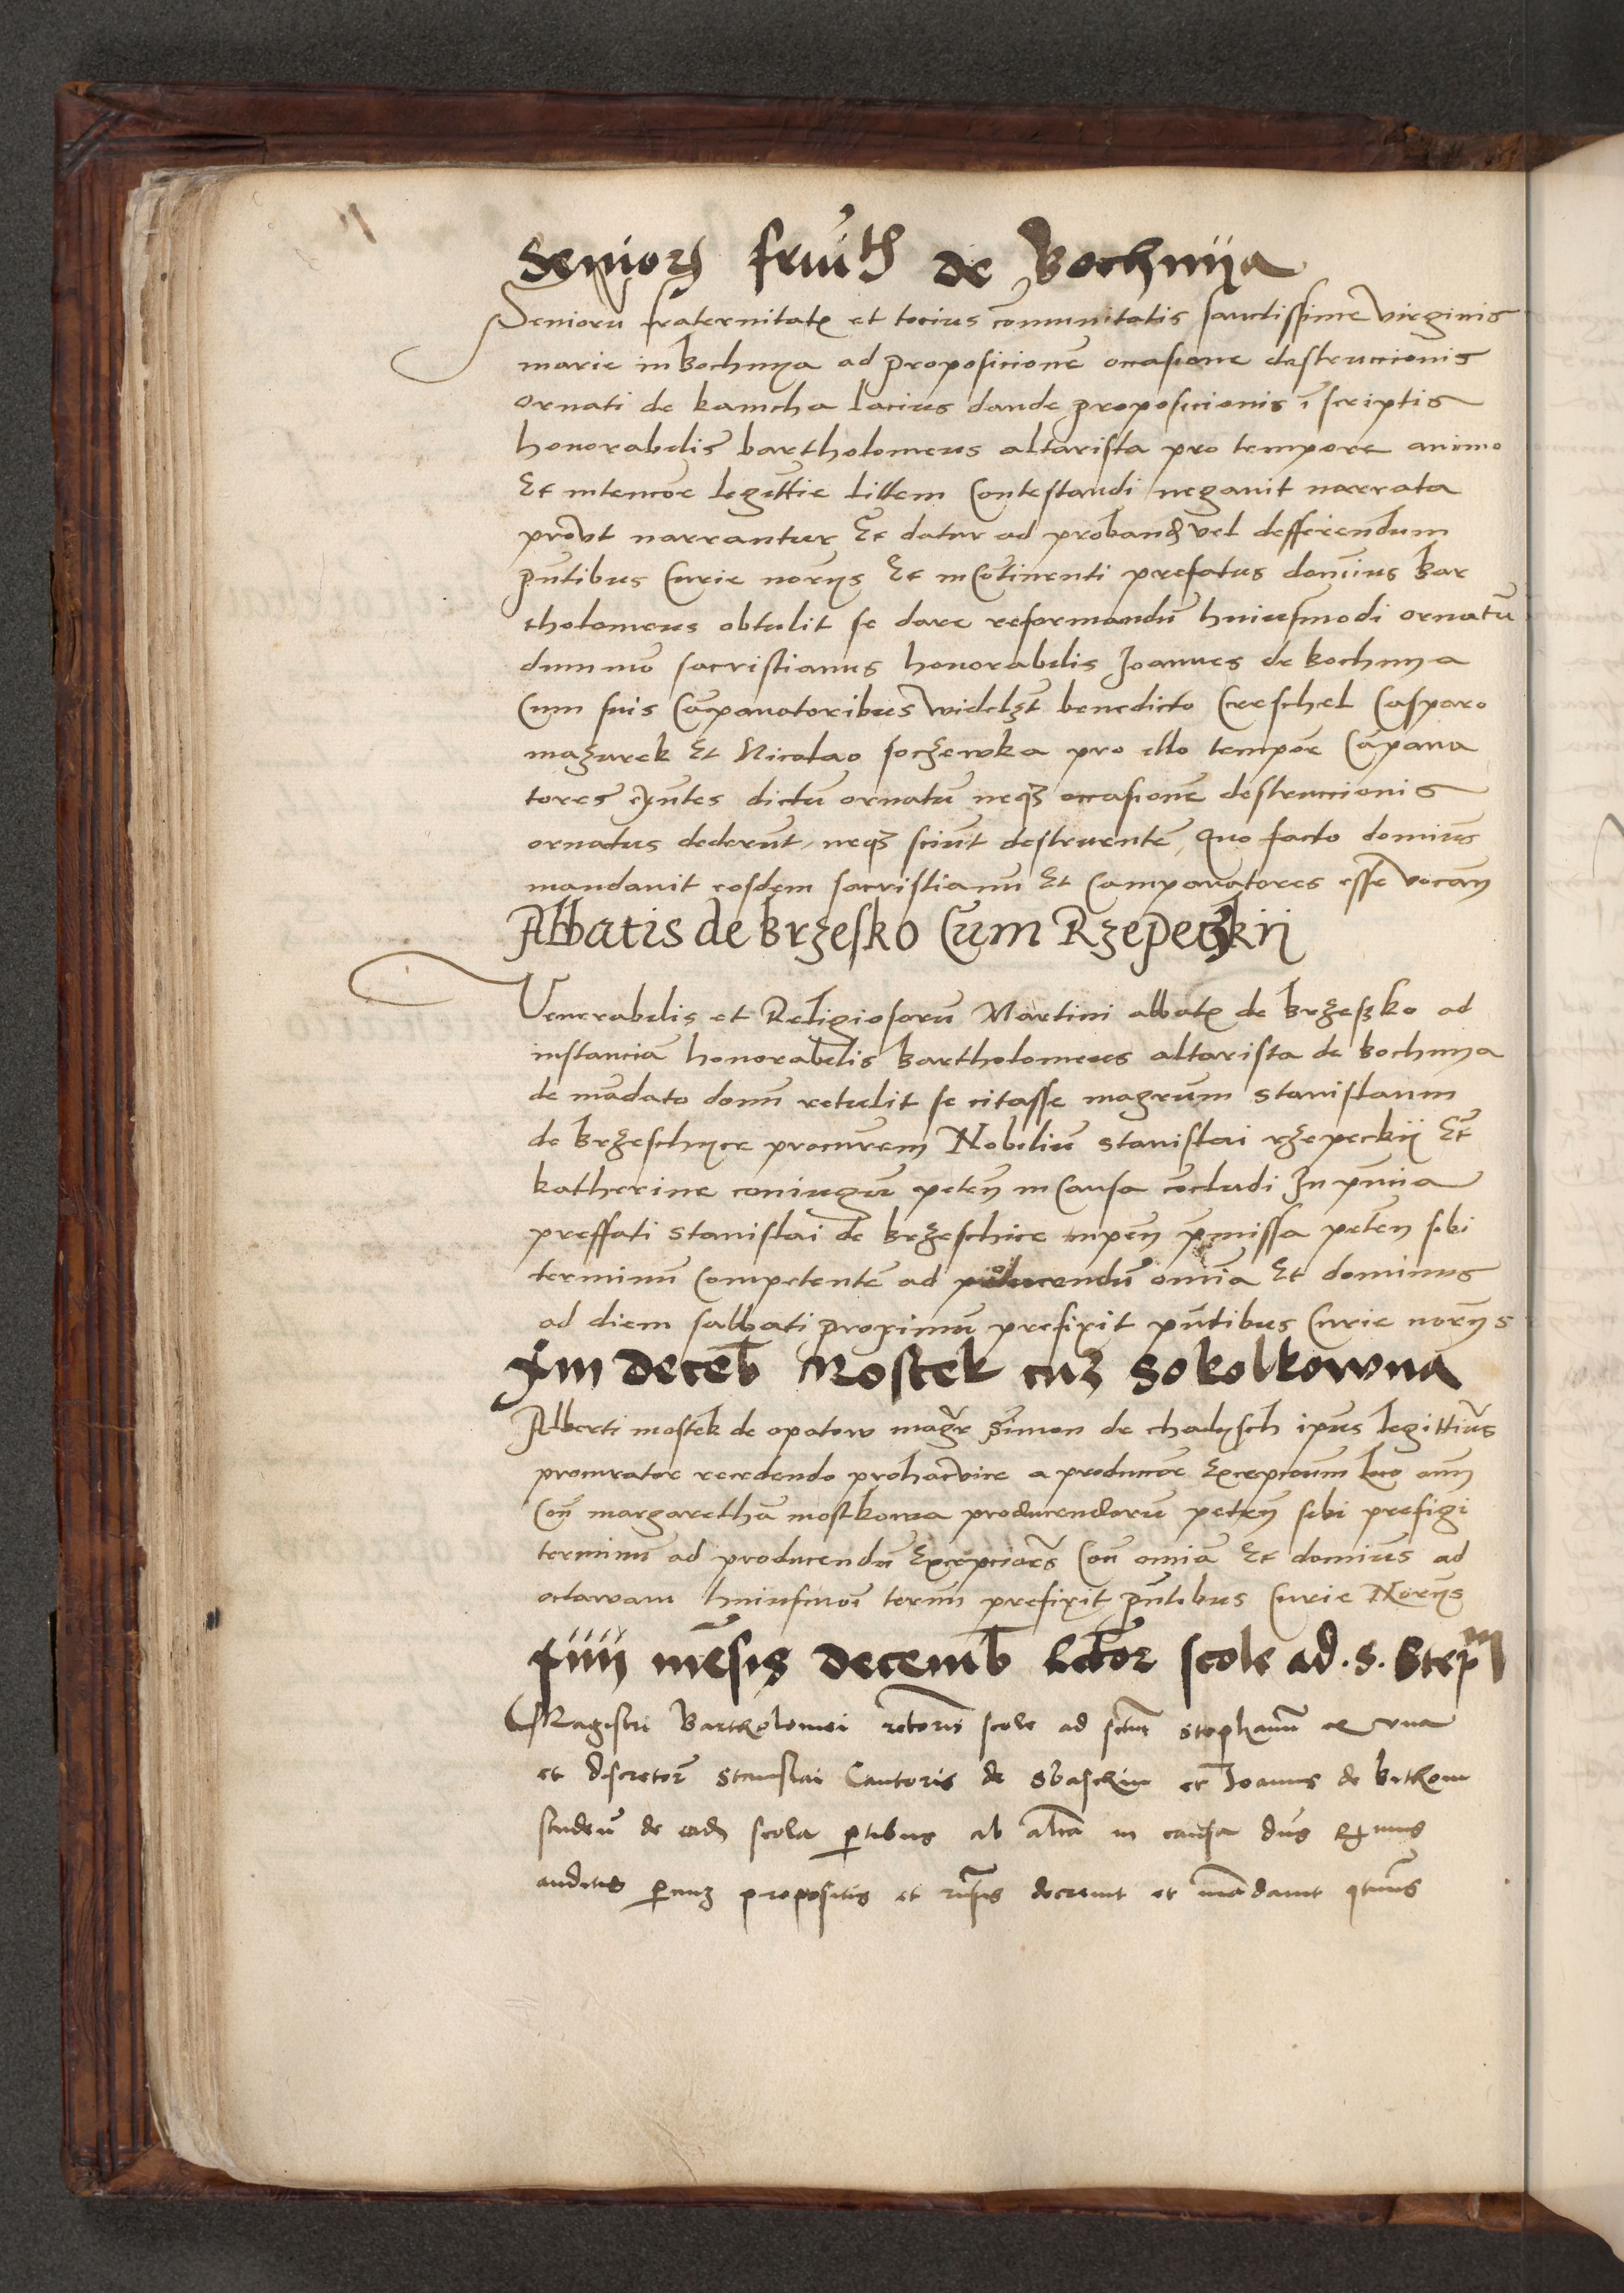 Seniorum fr̄nit̄ de Bochnija
Senioru fraternitatꝭ et tocius comunitatis sanctissime virginis
marie in bochnya ad proposicionē occasione destruccionis
ornati de kamcha lacius dande proposicionis ī scriptis
honorabilis bartholomeus altarista pro tempore animo
Et intencōe legittīe littem Contestandi negavit narrata
proūt narrantur Et datur ad proband vel defferendum
pn̄tibus Curie norijs Et in Cōtinenti prefatus domīus Bar
tholomeus obtulit se dare reformandū huiusmodi ornatū
dummō sacristianus honorabilis Joannes de bochnya
Cum suis Cāpanatoribus videlꝫt benedicto Creschel Casparo
mazurek Et Nicolao soczewka pro illo tempore Cāpana
tores exn̄tes dictū ornatū neqꝫ occasionē destruccionis
ornatus dederūt, neqꝫ sciūt destruentē, Quo facto domīus
mandavit eosdem sacristianū Et Campanatores esse vocan
Abbatis de brzesko Cum Rzepeczkij
Venerabilis et Religiosorū Martini abbatꝭ de brzesko ad
instanciā honorabilis Bartholomeus altarista de bochnya
de mādato domī retulit se citasse magrum stanislaum
de brzeschcze procurem Nobiliū stanislai rzepeckij Et
katherine coniugū peteñ in Causa cōcludi In pn̄cia
preffati stanislai de brzeschcze p̄missa peteñ sibi
terminū Competentē ad producendū omīa Et dominus
ad diem sabbati proximū prefixit pn̄tibus Curie norijs
xiii deceb Mostek cuꝫ Sokolkowna
Alberti mostek de opatow magr Simon de chadzsch ipius legittius
procurator recedendo pro hac vice a produccōe Excepcionum loco
Con margarethā mostkowa producendorū peteñ sibi prefigi
terminū ad producendū Excepciones Con omīa Et domīus ad
octavam huiusmōi termī prefixit pn̄tibus Curie Norijs
xiiii mēsis decemb Rector scole ad .S. Steph
Magistri Bartholomei rectoris scole ad sctm stephanū et una
et discretor stanislai Cantoris de et Joannis de
studen de ead scola p̄tibus ab altera in causa dūs
auditis propositis et decrevit et mādavit